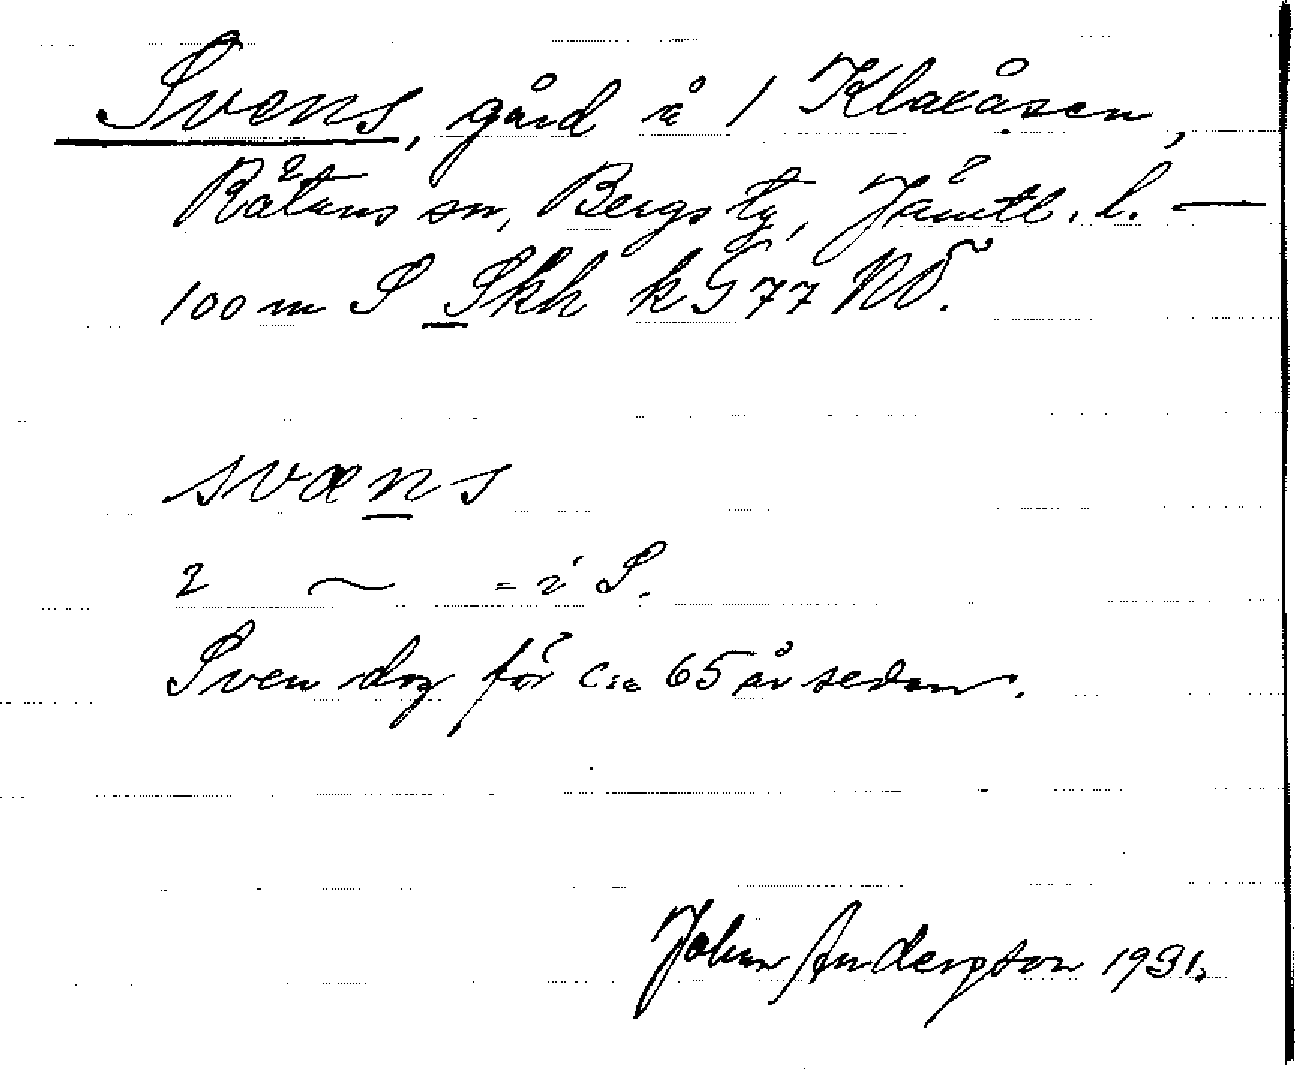 Svens, gård å 1 Klaxåsen,
Rätans sn, Bergs tg, Jämtl. l. —
100 m S Skh k G 77 NV.
svæns
2 ~ = i S.
Sven dog för c:a 65 år sedan.
John Anderson 1931.